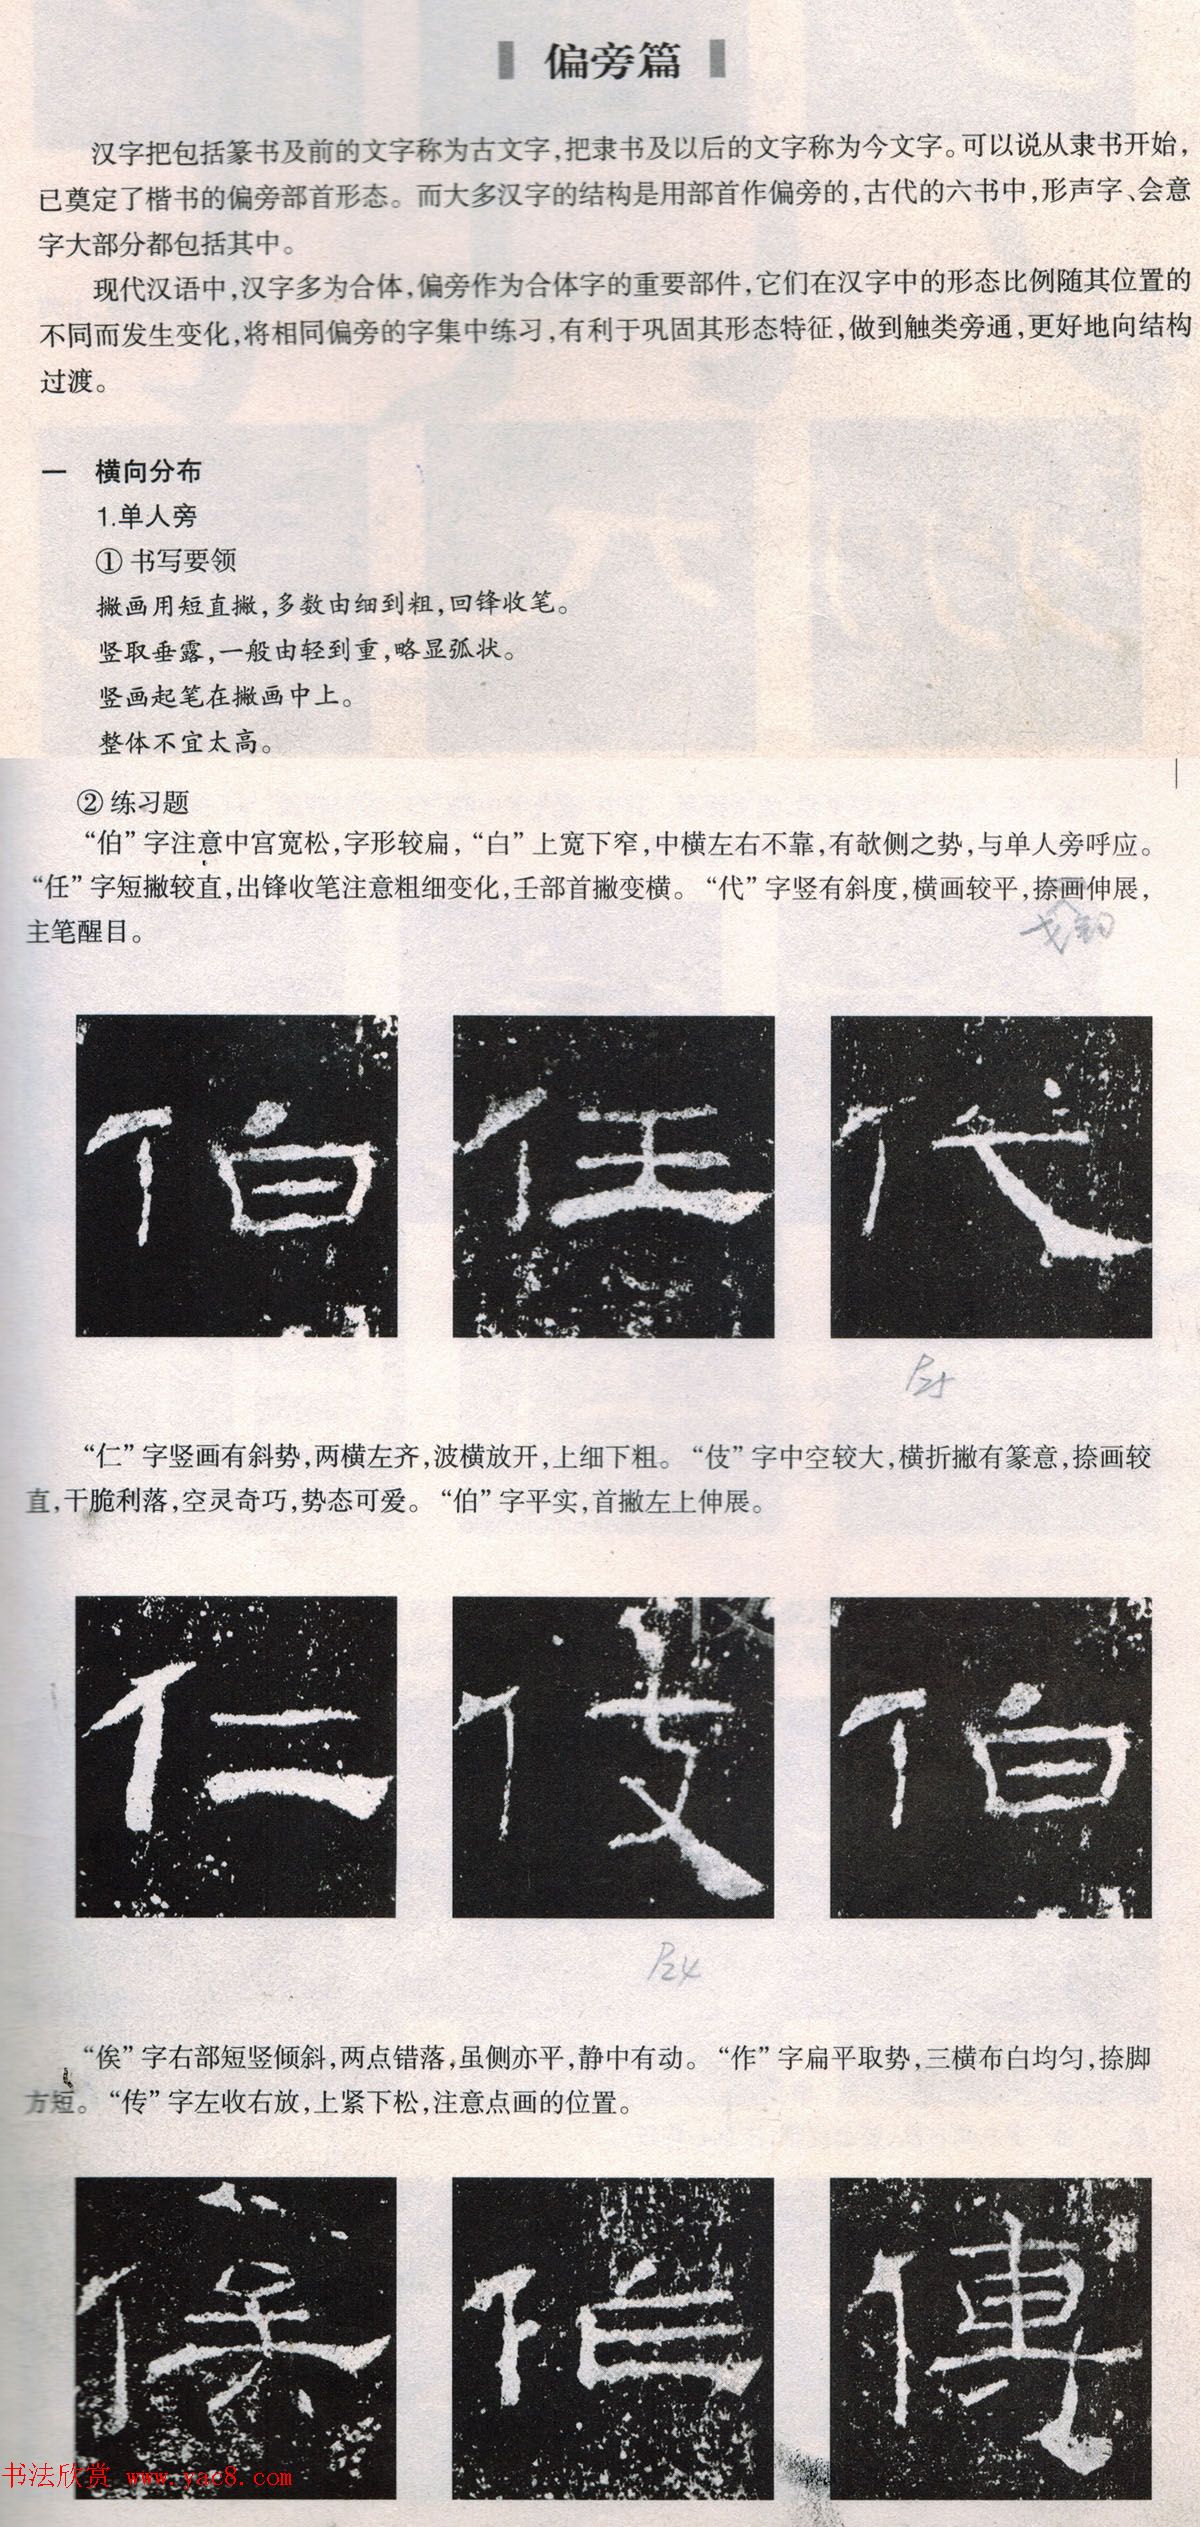 偏旁篇
汉字把包括篆书及前的文字称为古文字,把隶书及以后的文字称为今文字。可以说从隶书开始,
已奠定了楷书的偏旁部首形态。而大多汉字的结构是用部首作偏旁的,古代的六书中,形声字、会意
字大部分都包括其中。
现代汉语中,汉字多为合体,偏旁作为合体字的重要部件,它们在汉字中的形态比例随其位置的
不同而发生变化,将相同偏旁的字集中练习,有利于巩固其形态特征,做到触类旁通,更好地向结构
过渡。
一 横向分布
1.单人旁
① 书写要领
撇画用短直撇,多数由细到粗,回锋收笔。
竖取垂露,一般由轻到重,略显弧状。
竖画起笔在撇画中上。
整体不宜太高。
② 练习题
“伯”字注意中宫宽松,字形较扁,“白”上宽下窄,中横左右不靠,有欹侧之势,与单人旁呼应。
“任”字短撇较直,出锋收笔注意粗细变化,壬部首撇变横。“代”字竖有斜度,横画较平,捺画伸展,
戈钩
主笔醒目。
伯 任 代
P25
“仁”字竖画有斜势,两横左齐,波横放开,上细下粗。“伎”字中空较大,横折撇有篆意,捺画较
直,干脆利落,空灵奇巧,势态可爱。“伯”字平实,首撇左上伸展。
仁 伎 伯
P24
“俟”字右部短竖倾斜,两点错落,虽侧亦平,静中有动。“作”字扁平取势,三横布白均匀,捺脚
方短。“传”字左收右放,上紧下松,注意点画的位置。
俟 作 傳
书法欣赏 www.yac8.com